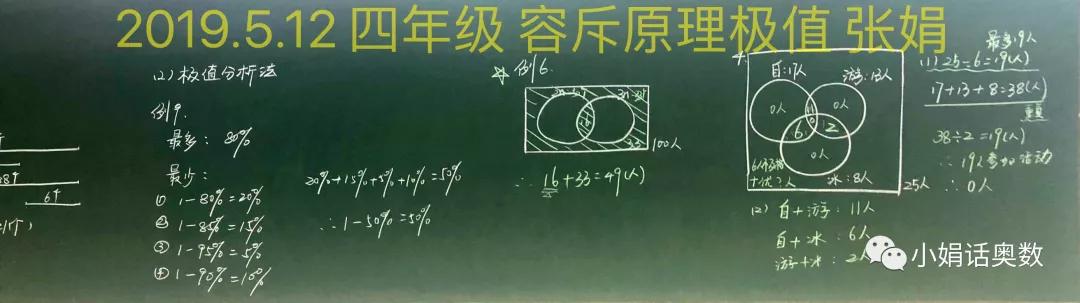 2019.5.12 四年级 容斥原理极值 张娟
6个
(2) 极值分析法
例9.
最多: 80%
最少:
① 1-80%=20%
② 1-85%=15%
③ 1-95%=5%
④ 1-90%=10%
20%+15%+5%+10%=50%
∴ 1-50%=50%
☆ 例6.
33
100人
∴ 16+33=49(人)
4.
自:17人
游:13人
0人
0人
6
2
0人
冰:8人
25人
最多:9人
(1) 25-6=19(人)
17+13+8=38(人)
38÷2=19(人)
∴ 19人参加活动
∴ 0人
(2) 自+游: 11人
自+冰: 6人
游+冰: 2人
小娟话奥数